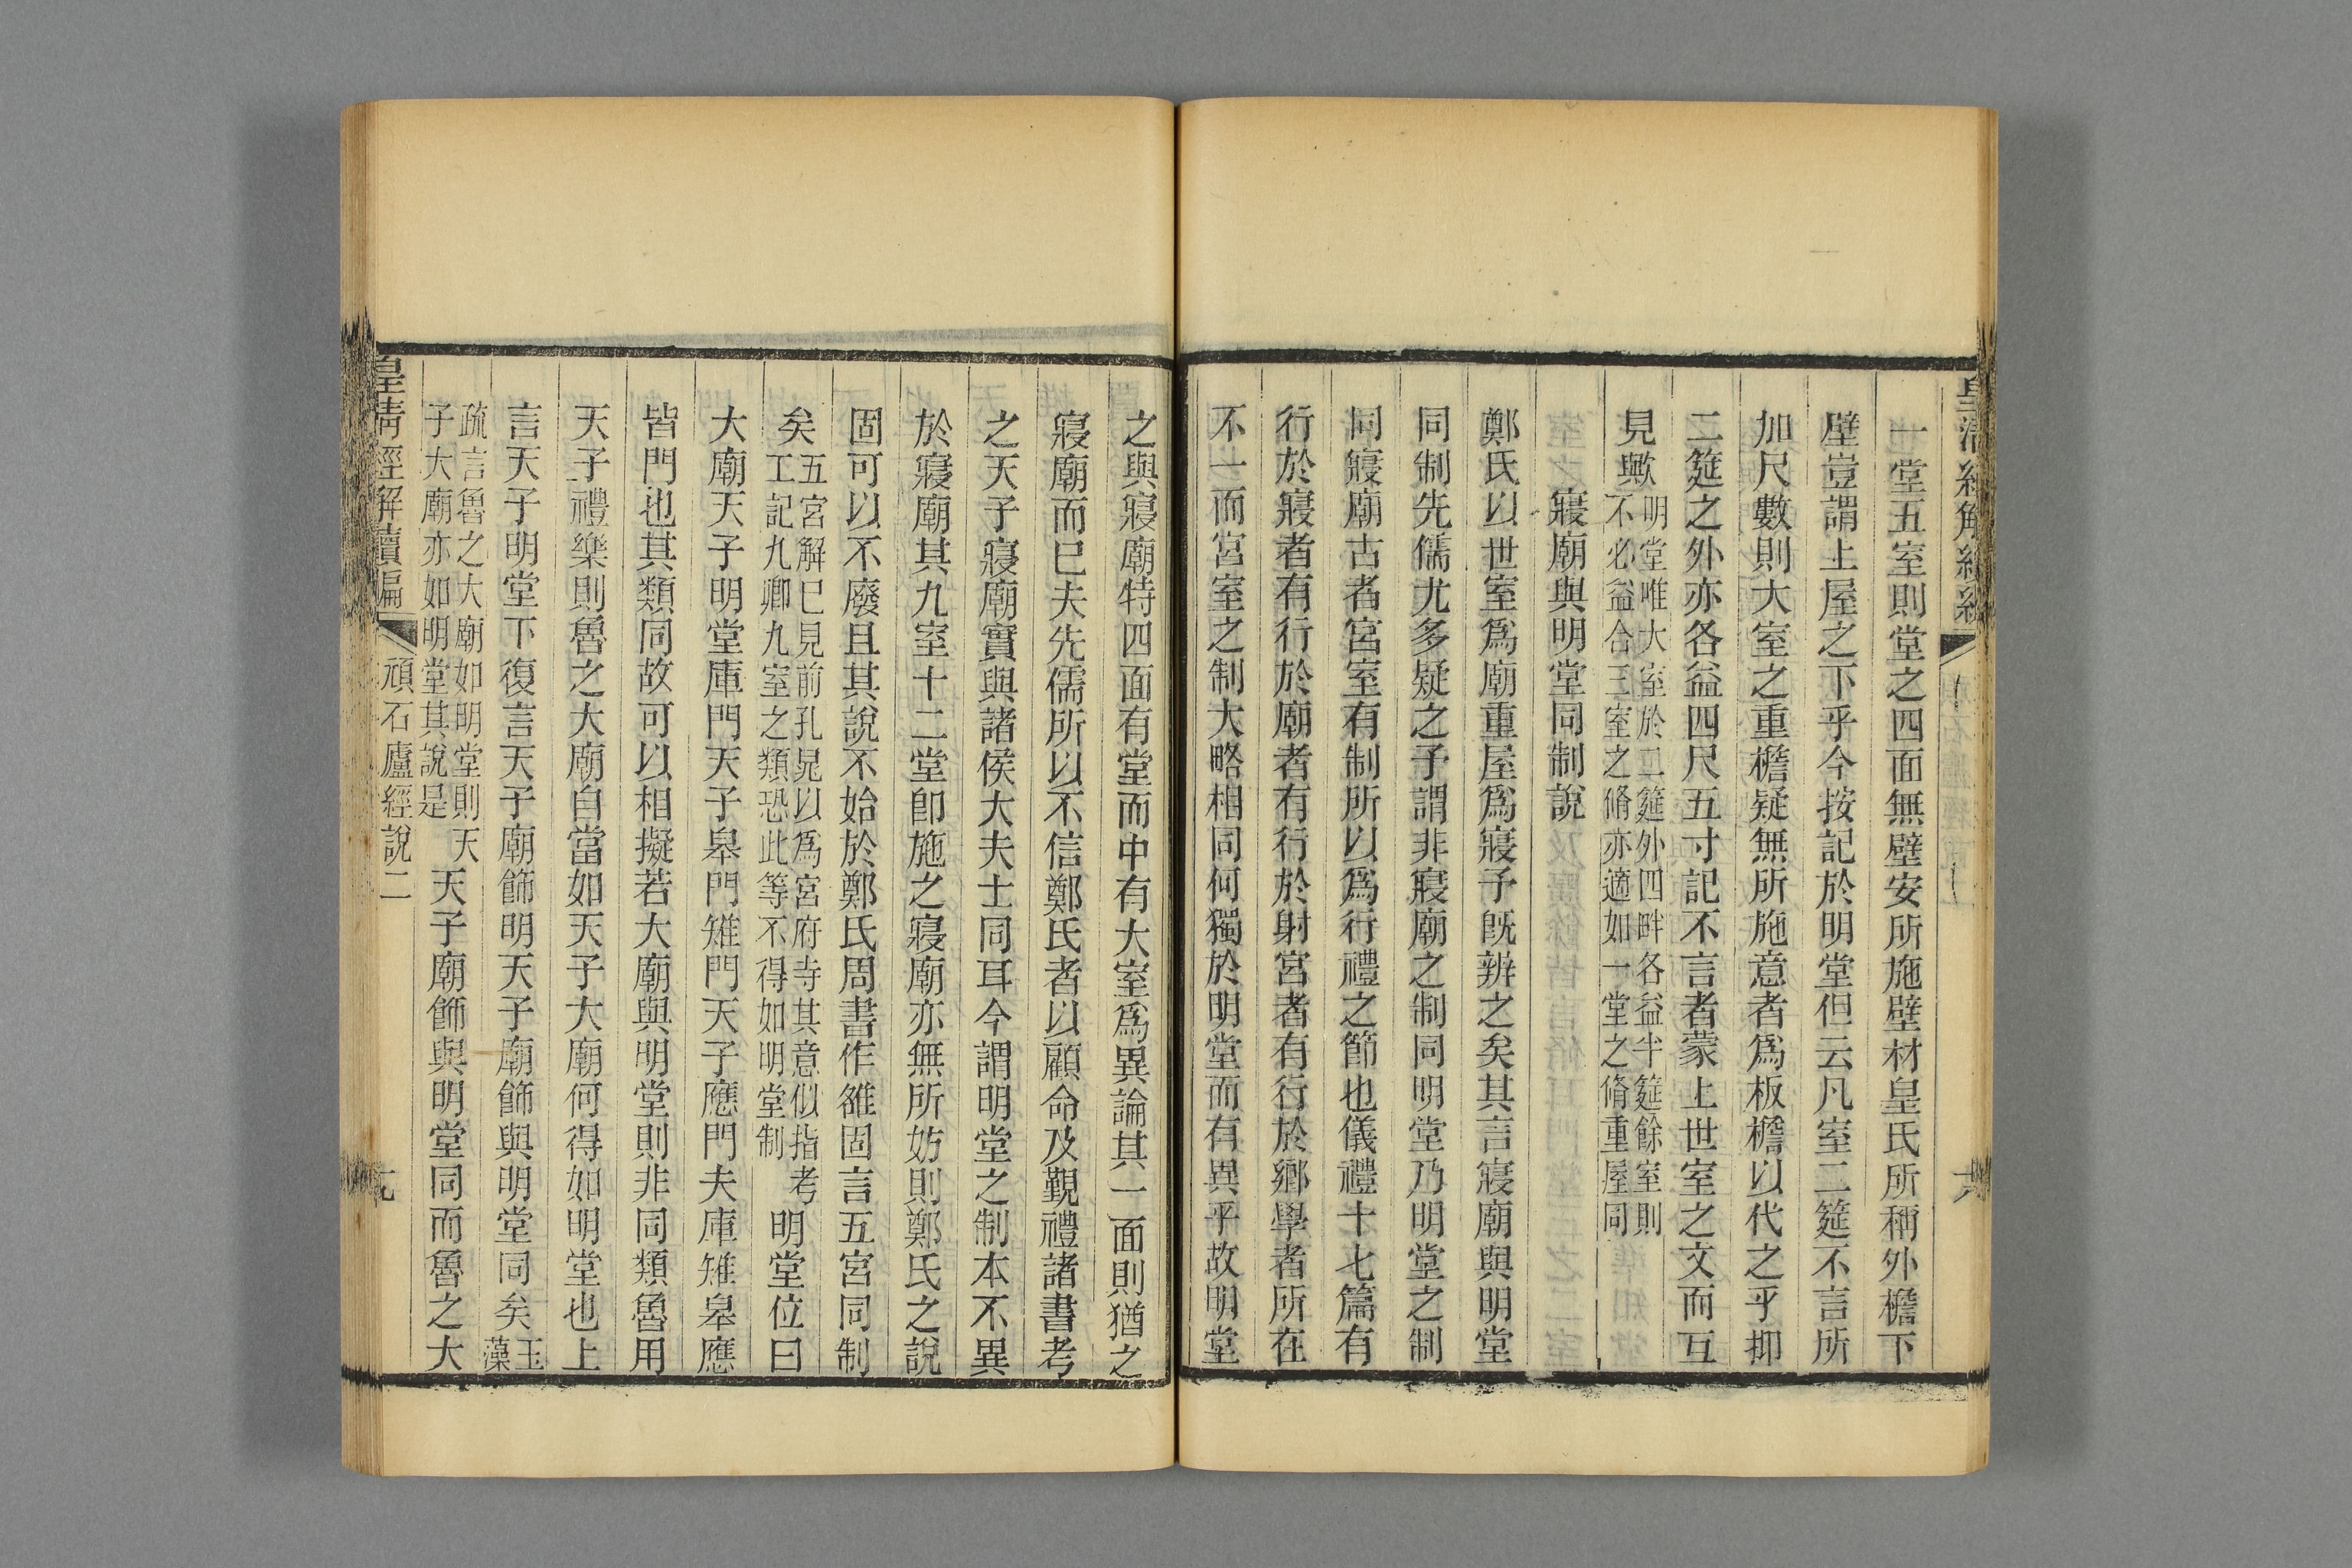 一堂五室則堂之四面無壁安所施壁材皇氏所稱外檐下
壁豈謂上屋之下乎今按記於明堂但云凡室二筵不言所
加尺數則大室之重檐疑無所施意者爲板檐以代之乎抑
二筵之外亦各益四尺五寸記不言者蒙上世室之文而互
見歟明堂唯大室於二筵外四畔各益半筵餘室則
不必益合三室之脩亦適如一堂之脩重屋同
寢廟與明堂同制說
鄭氏以世室爲廟重屋爲寢予旣辨之矣其言寢廟與明堂
同制先儒尤多疑之予謂非寢廟之制同明堂乃明堂之制
同寢廟古者宮室有制所以爲行禮之節也儀禮十七篇有
行於寢者有行於廟者有行於射宮者有行於鄉學者所在
不一而宮室之制大略相同何獨於明堂而有異乎故明堂
之與寢廟特四面有堂而中有大室爲異論其一面則猶之
寢廟而已夫先儒所以不信鄭氏者以顧命及覲禮諸書考
之天子寢廟實與諸侯大夫士同耳今謂明堂之制本不異
於寢廟其九室十二堂卽施之寢廟亦無所妨則鄭氏之說
固可以不廢且其說不始於鄭氏周書作雒固言五宮同制
矣五宮解已見前孔晁以爲宮府寺其意似指考
工記九卿九室之類恐此等不得如明堂制
明堂位曰
大廟天子明堂庫門天子皋門雉門天子應門夫庫雉皋應
皆門也其類同故可以相擬若大廟與明堂則非同類魯用
天子禮樂則魯之大廟自當如天子大廟何得如明堂也上
言天子明堂下復言天子廟飾明天子廟飾與明堂同矣玉
藻
疏言魯之大廟如明堂則天
子大廟亦如明堂其說是
天子廟飾與明堂同而魯之大
皇清經解續編
頑石廬經說二